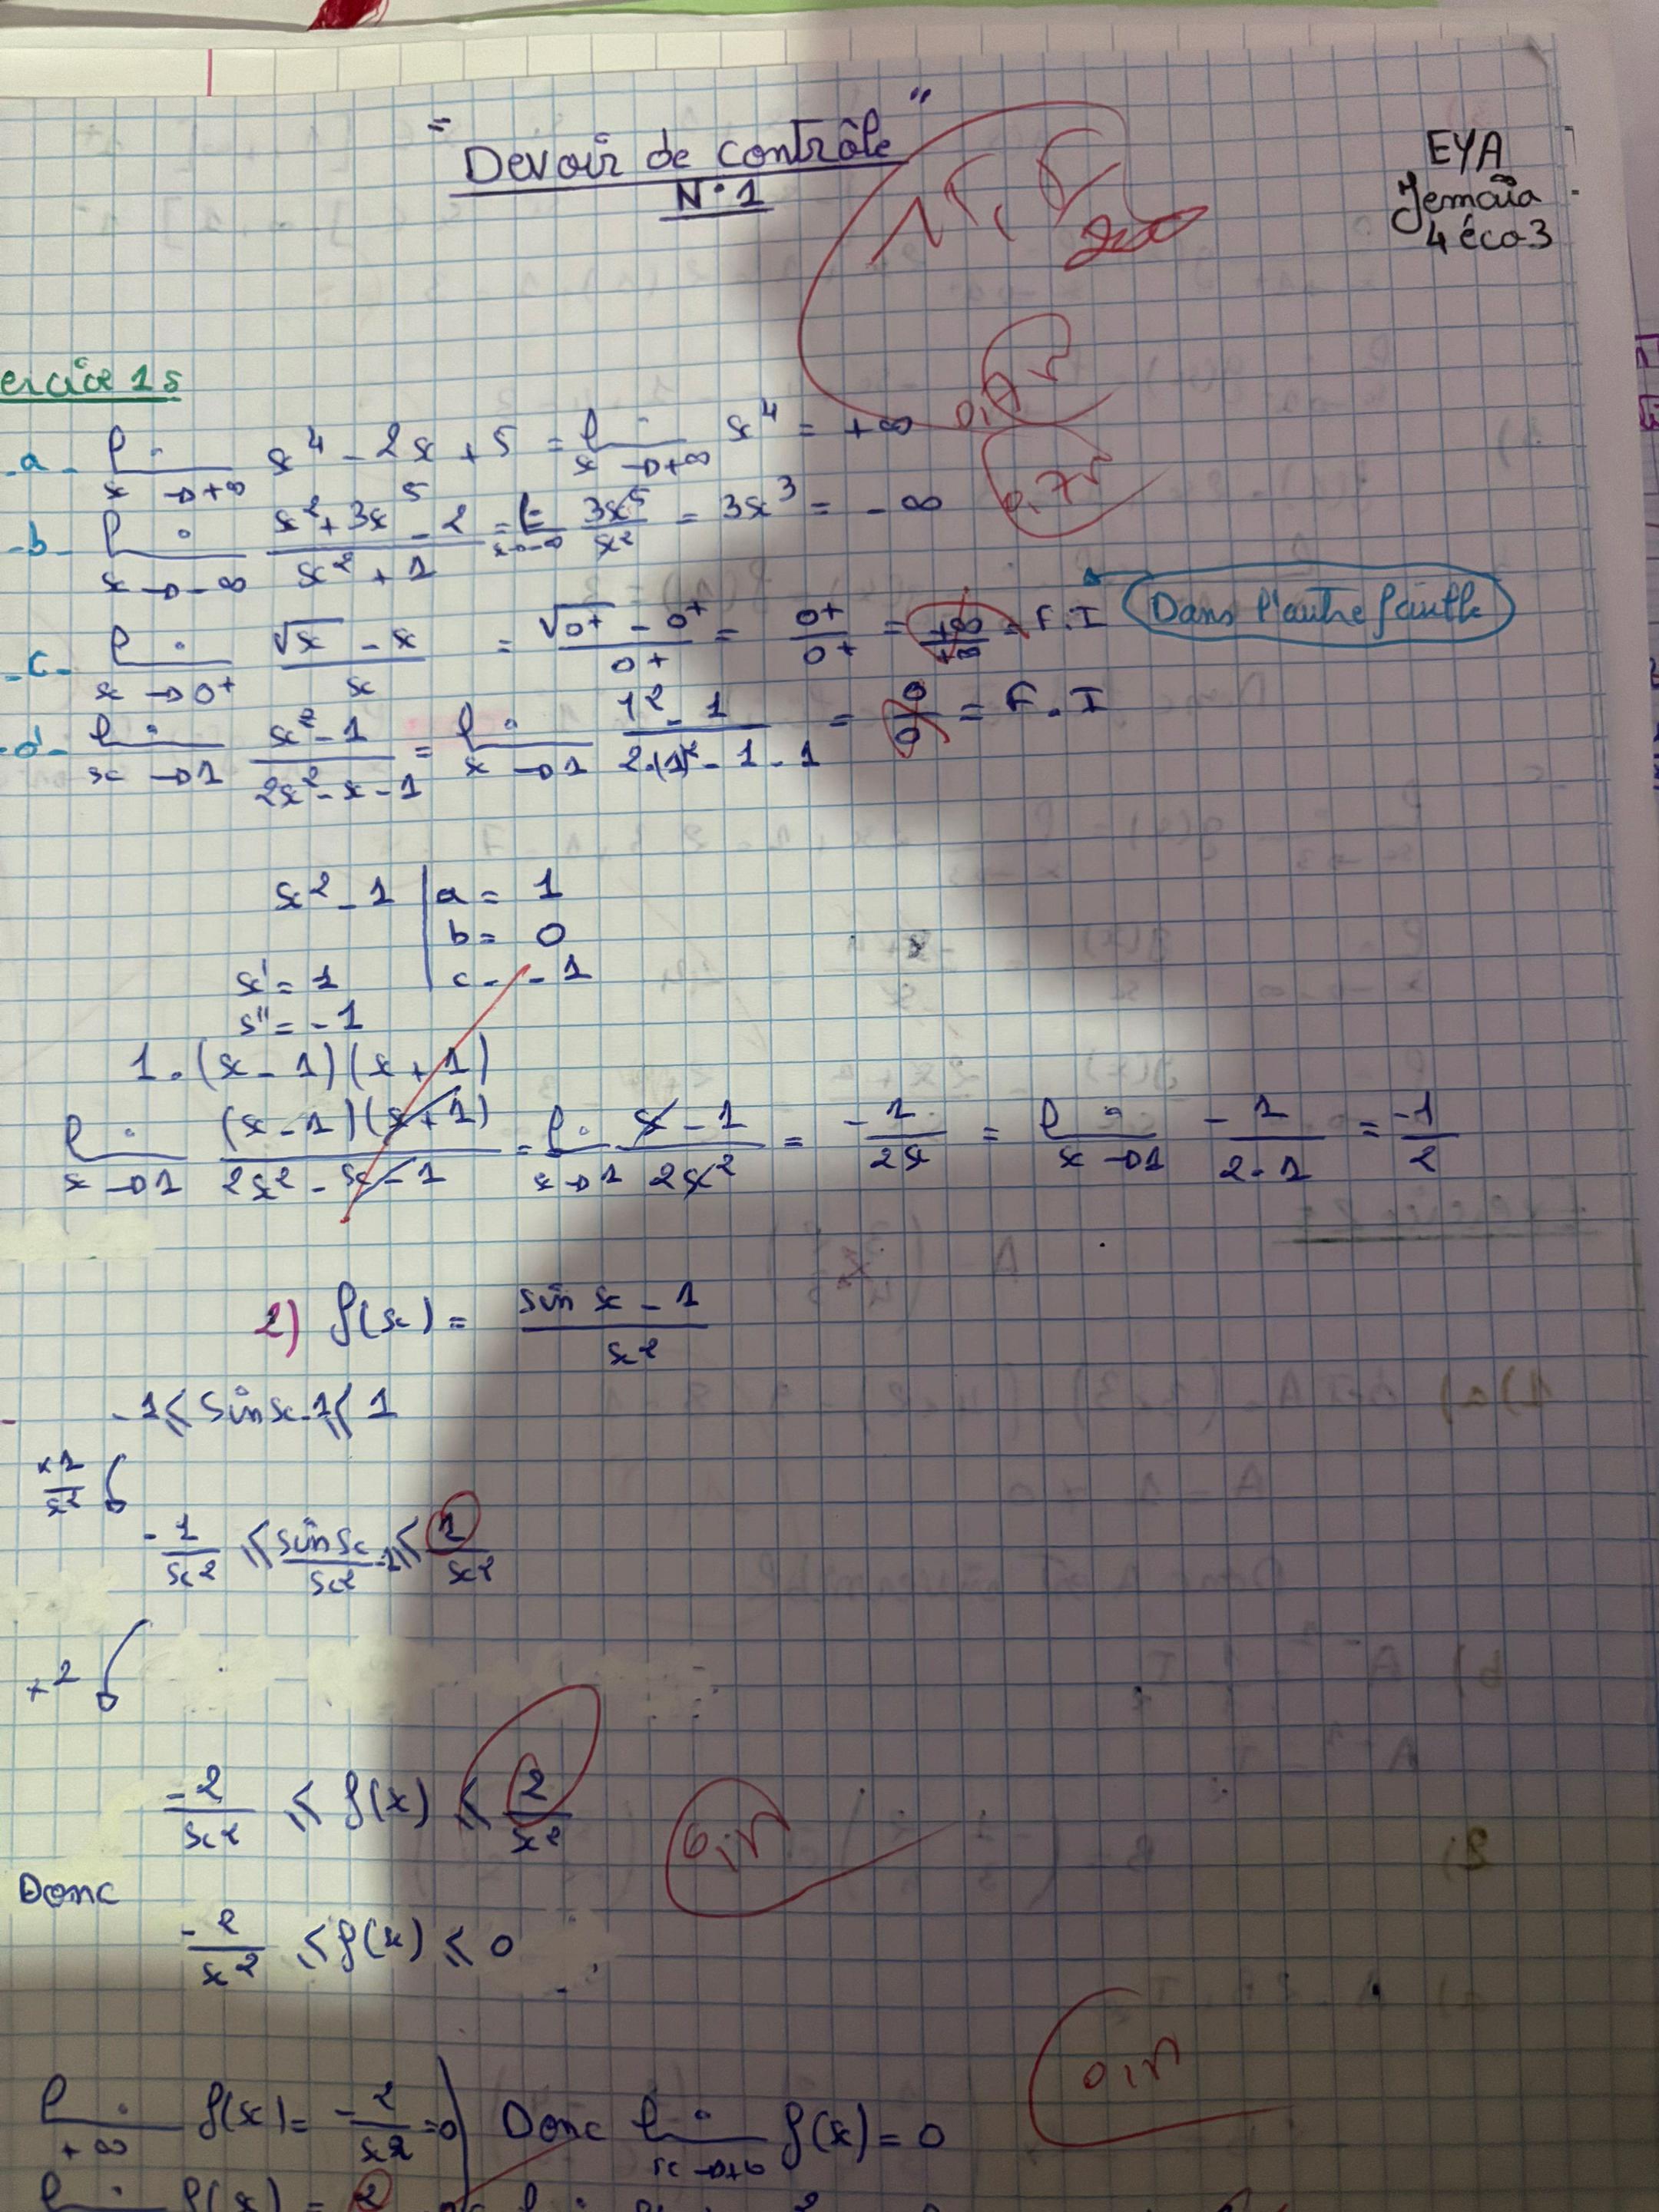 = Devoir de contrôle "
N°1
EYA
Jemaïa
4 éco3
15,5
20
ercice 1 s
0,75
- a - lim x→+∞ x⁴ - 2x + 5 = lim x→+∞ x⁴ = +∞
0,75
- b - lim x→-∞ (x² + 3x⁵ - 2)/(x² + 1) = lim x→-∞ 3x⁵/x² = 3x³ = -∞
- c - lim x→0⁺ (√x - x)/x = (√0⁺ - 0⁺)/0⁺ = 0⁺/0⁺ = +∞/+∞ = F.I Dans l'autre feuille
- d - lim x→1 (x² - 1)/(2x² - x - 1) = lim x→1 (1² - 1)/(2·(1)² - 1 - 1) = 0/0 = F.I
x² - 1 | a = 1
b = 0
x' = 1 c = -1
x'' = -1
1.(x - 1)(x + 1)
lim x→1 (x - 1)(x + 1)/(2x² - x - 1) = lim x→1 (x - 1)/2x² = -1/2x = lim x→1 -1/2·1 = -1/2
2) f(x) = (sin x - 1)/x²
-1 ≤ sin x - 1 ≤ 1
×1/x²
-1/x² ≤ sin x/x² - 1 ≤ 1/x²
+2
-2/x² ≤ f(x) ≤ 2/x²
0,5
Donc
-2/x² ≤ f(x) ≤ 0
0,5
lim +∞ f(x) = -2/x² = 0 | Donc lim x→+∞ f(x) = 0